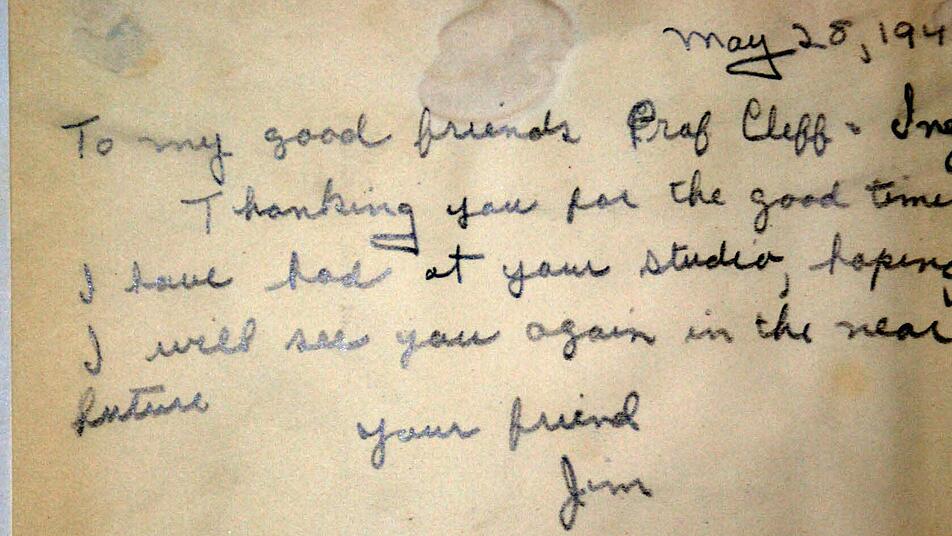 May 28, 194
To my good friends Prof Cleff - Ing
Thanking you for the good time
I have had at your studio, hoping
I will see you again in the near
future
your friend
Jim